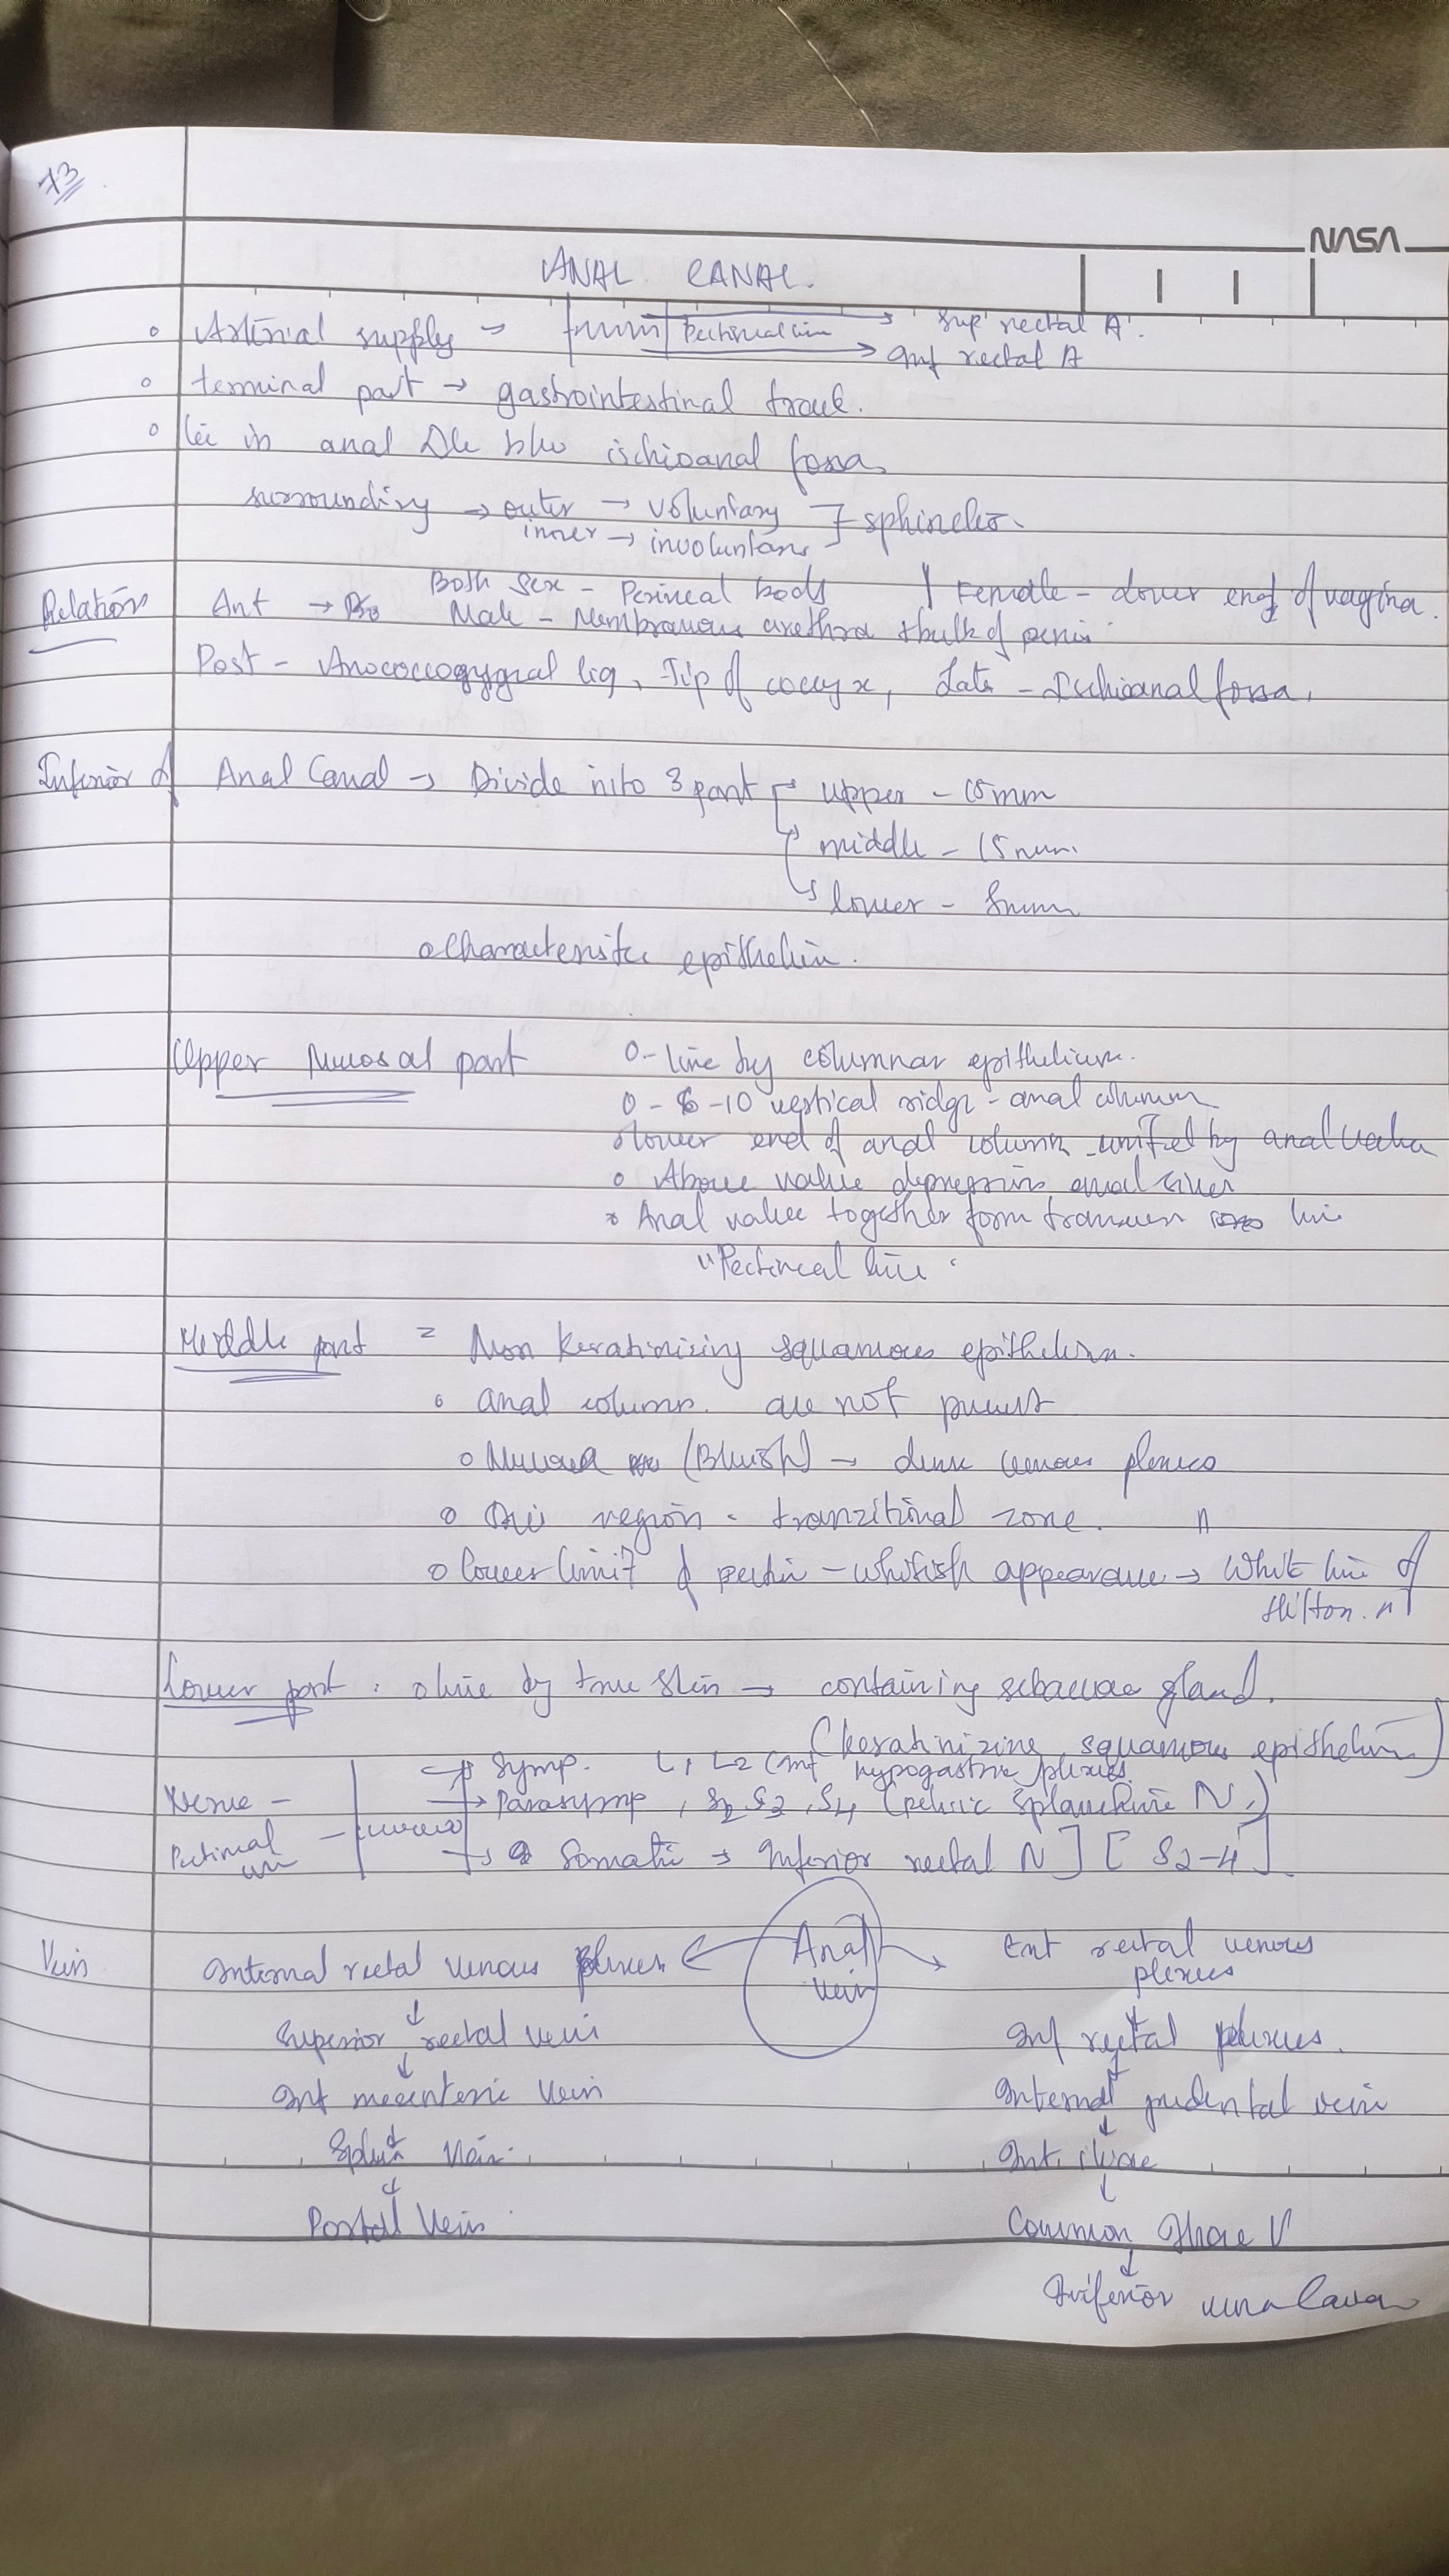 73
NASA
ANAL CANAL.
Arterial supply → Pectineal line → Sup rectal A.
→ Inf rectal A
terminal part → gastrointestinal
lie in anal Δle b/w ischioanal fossa.
surrounding → outer → voluntary } sphincter.
inner → involuntary
Relation Ant → Both Sex - Perineal body / Female - lower end of vagina.
Male - Membranous urethra + bulb of penis.
Post - Anococcogygeal lig, Tip of coccyx, Late - Ischioanal fossa.
Inferior of Anal Canal → Divide into 3 part → upper - 15mm
→ middle - 15mm.
→ lower - 8mm
Characteristic
Upper Mucosal part - line by columnar epithelium.
- 6-10 vertical ridge - anal column
lower end of anal column by anal
Above valve depression anal
Anal valve together form line
"Pectineal line"
Middle part = Non Keratinizing squamous epithelium.
anal column. are not present
Mucosa (Bluish) → dense venous plexus
region - tranzitional zone.
lower limit of pectin - whitish appearance → White line of
Hilton."
Lower part : line by true skin → containing sebaceous gland.
(keratinizing squamous epithelium)
Nerve - → Symp. L1, L2 (inf hypogastric plexus.
→ Parasymp, S2 S3, S4 (pelvic splanchnic N.)
Pectineal line - → Somatic → Inferior rectal N] [S2-4].
Vein Internal rectal venous plexus ← Anal vein → Ext rectal venous
plexus
↓ Superior rectal vein ↓ Inf rectal plexus.
↓ Inf mesenteric vein ↓ Internal pudental vein
↓ Vein. ↓ Int. iliac
↓ Portal Vein. ↓ Common Iliac V
↓ Inferior vena Cava